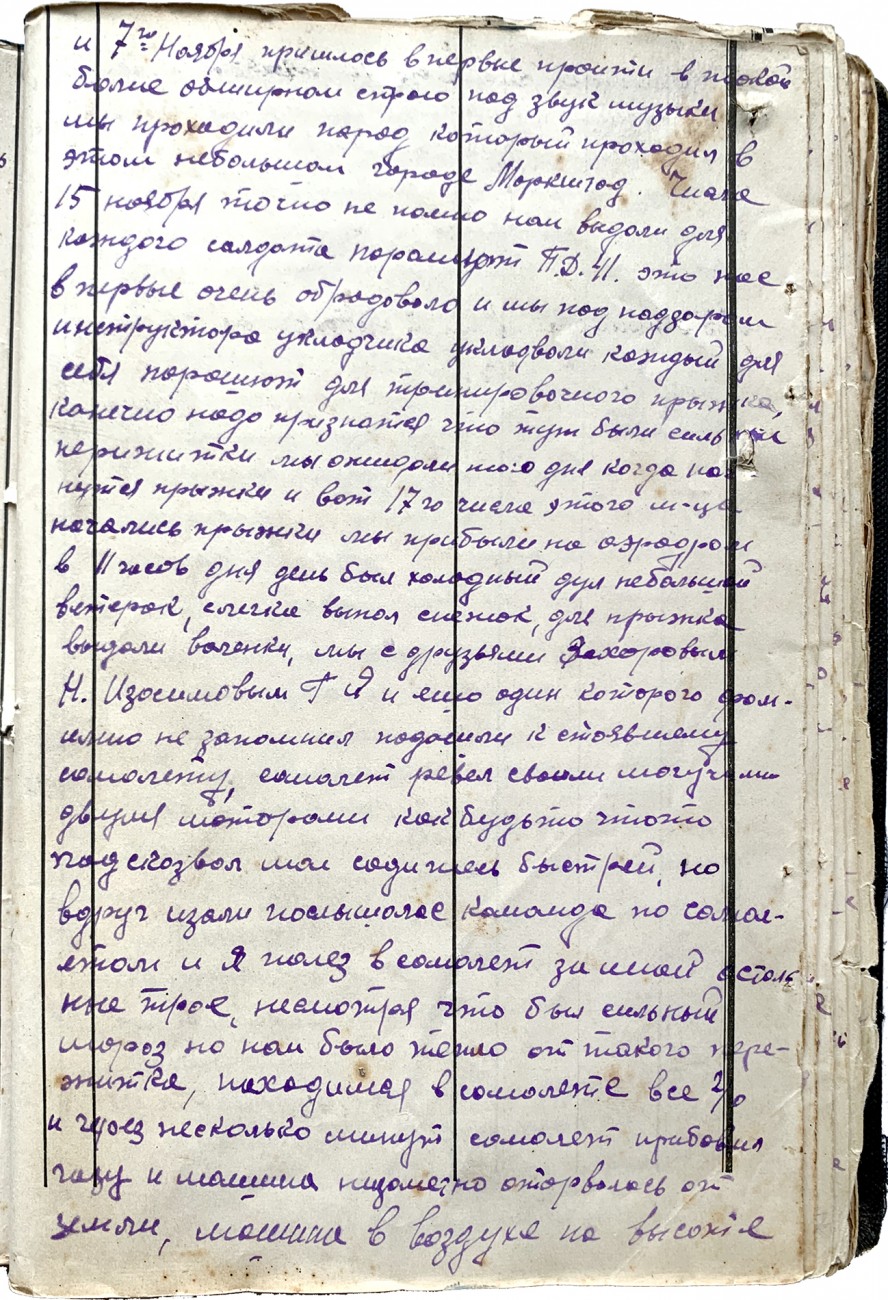 и 7го Ноября пришлось впервые пройти в такой
более обширном строю под звук музыки
мы проходили парад который проходил в
этом небольшом городе Моркштад. Числа
15 ноября точно не помню нам выдали для
каждого солдата парашют П.Д.41. это нас
впервые очень обрадовало и мы под надзором
инструктора укладчика укладвали каждый для
себя парашют для тренировочного прыжка,
канечно надо признатся что тут были сильные
перижитки мы ожидали того дня когда нач
нутся прыжки и вот 17го числа этого м-ца
начались прыжки мы прибыли на аэродром
в 11 часов дня день был холодный дул небольшой
ветерок, слегка выпал снежок, для прыжка
выдали валенки, мы с друзьями Захаровым
Н. Изосимовым Г Я и ещо один которого фам-
илию не запомнил подошли к стоявшему
самолету, самолет ревел своими могучими
двумя моторами как будьто чтото
подсказвал мол садитесь быстрей, но
вдруг изали послышалас команда по самол-
етам и я полез в самолет за мной осталь
ные трое, несмотря что был сильный
мороз но нам было тепло от такого пере-
житка, находимся в самолете все
и через несколько минут самолет прибавил
газу и машина незаметно оторвалась от
земли, машина в воздухе на высоте